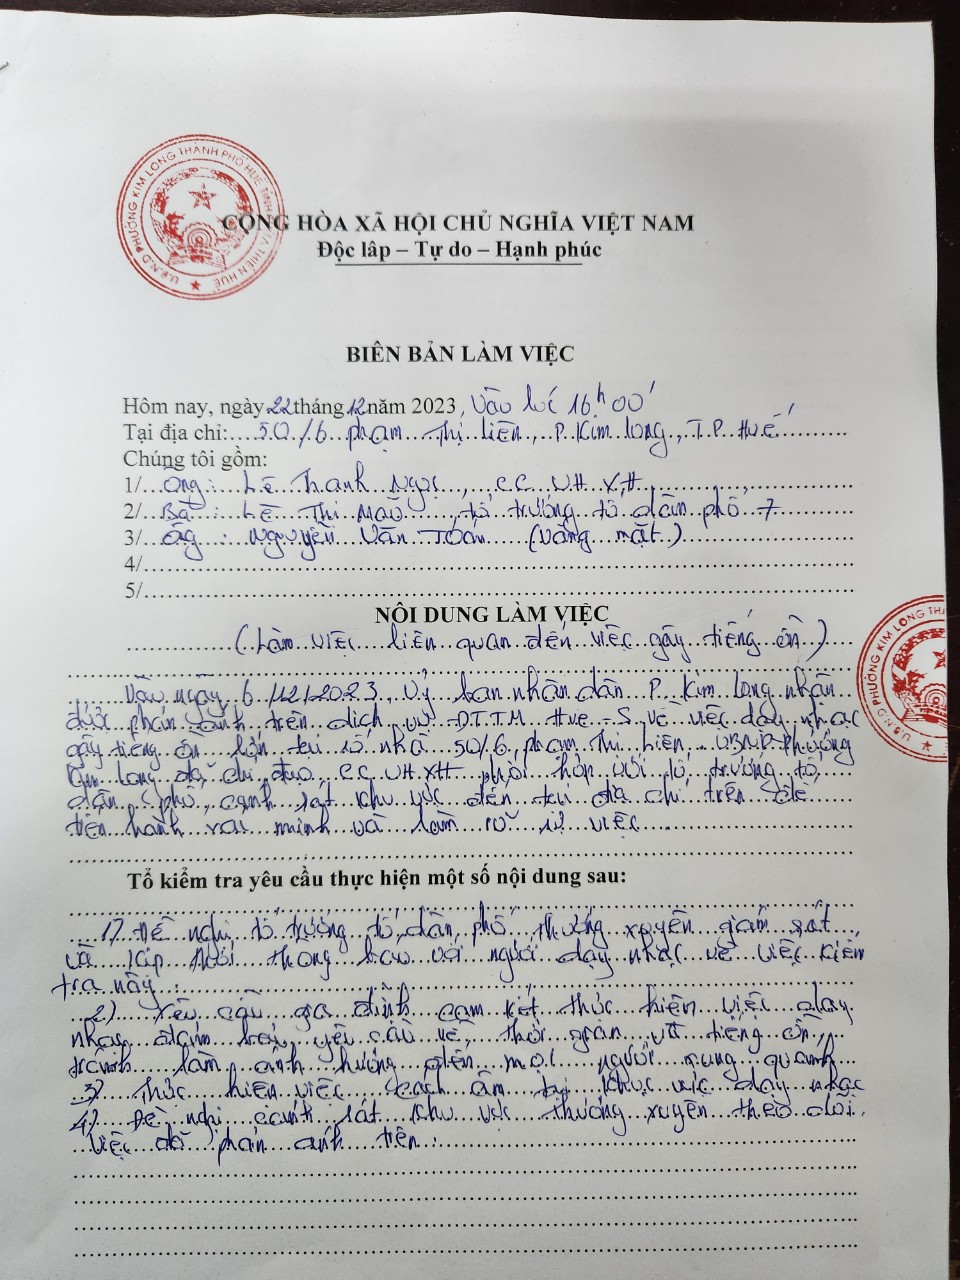 U.B.N.D PHƯỜNG KIM LONG THÀNH PHỐ HUẾ TỈNH THỪA THIÊN HUẾ
CỘNG HÒA XÃ HỘI CHỦ NGHĨA VIỆT NAM
Độc lập – Tự do – Hạnh phúc
BIÊN BẢN LÀM VIỆC
Hôm nay, ngày 22 tháng 12 năm 2023, Vào lúc 16h00'
Tại địa chỉ: 50/6 phạm Thị Liên, P. Kim Long, T.P Huế
Chúng tôi gồm:
1/ Ông: Lê Thanh Ngọc, CC VH XH
2/ Bà: Lê Thị Mão, tổ trưởng tổ dân phố 7
3/ Ông: Nguyễn Văn Toàn (vắng mặt)
4/
5/
NỘI DUNG LÀM VIỆC
(Làm việc liên quan đến việc gây tiếng ồn)
Vào ngày 6/12/2023 Uỷ ban nhân dân P. Kim Long nhận
được phản ánh trên dịch vụ ĐTTM Hue-S về việc dạy nhạc
gây tiếng ồn lớn tại số nhà 50/6 phạm Thị Liên. UBND Phường
Kim Long đã chỉ đạo CC VH XH phối hợp với tổ trưởng tổ
dân phố, cảnh sát khu vực đến tại địa chỉ trên để
tiến hành xác minh và làm rõ sự việc
Tổ kiểm tra yêu cầu thực hiện một số nội dung sau:
1) Đề nghị tổ trưởng tổ dân phố thường xuyên giám sát
và kịp thời thông báo với người dạy nhạc về việc kiểm
tra này:
2) Yêu cầu gia đình cam kết thực hiện việc dạy
nhạc đảm bảo yêu cầu về thời gian và tiếng ồn,
tránh làm ảnh hưởng đến mọi người xung quanh
3) Thực hiện việc cách âm tại khu vực dạy nhạc
4) Đề nghị cảnh sát khu vực thường xuyên theo dõi
việc đã phản ánh trên:
PHƯỜNG KIM LONG